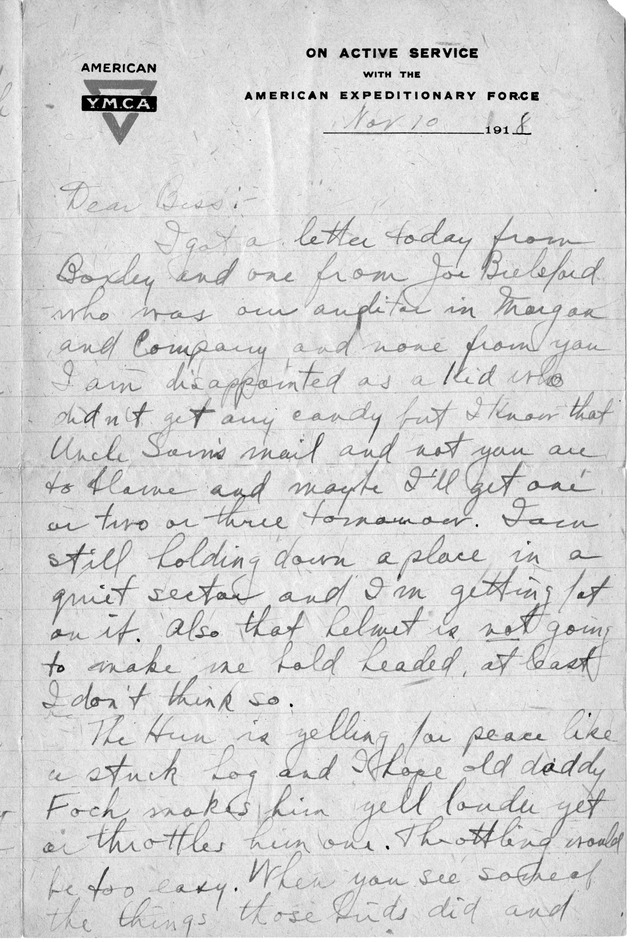 AMERICAN
Y.M.C.A
ON ACTIVE SERVICE
WITH THE
AMERICAN EXPEDITIONARY FORCE
Nov 10 1918
Dear Bess:-
I got a letter today from
Boxley and one from Joe Bielsford
who was our auditor in Morgan
and Company and none from you
I am disappointed as a kid who
didn't get any candy but I know that
Uncle Sam's mail and not you are
to blame and maybe I'll get one
or two or three tomorrow. I am
still holding down a place in a
quiet sector and I'm getting fat
on it. Also that helmet is not going
to make me bald headed, at least
I don't think so.
The Hun is yelling for peace like
a stuck hog and I hope old daddy
Foch makes him yell louder yet
or throttles him one. Throttling would
be too easy. When you see some of
the things those birds did and